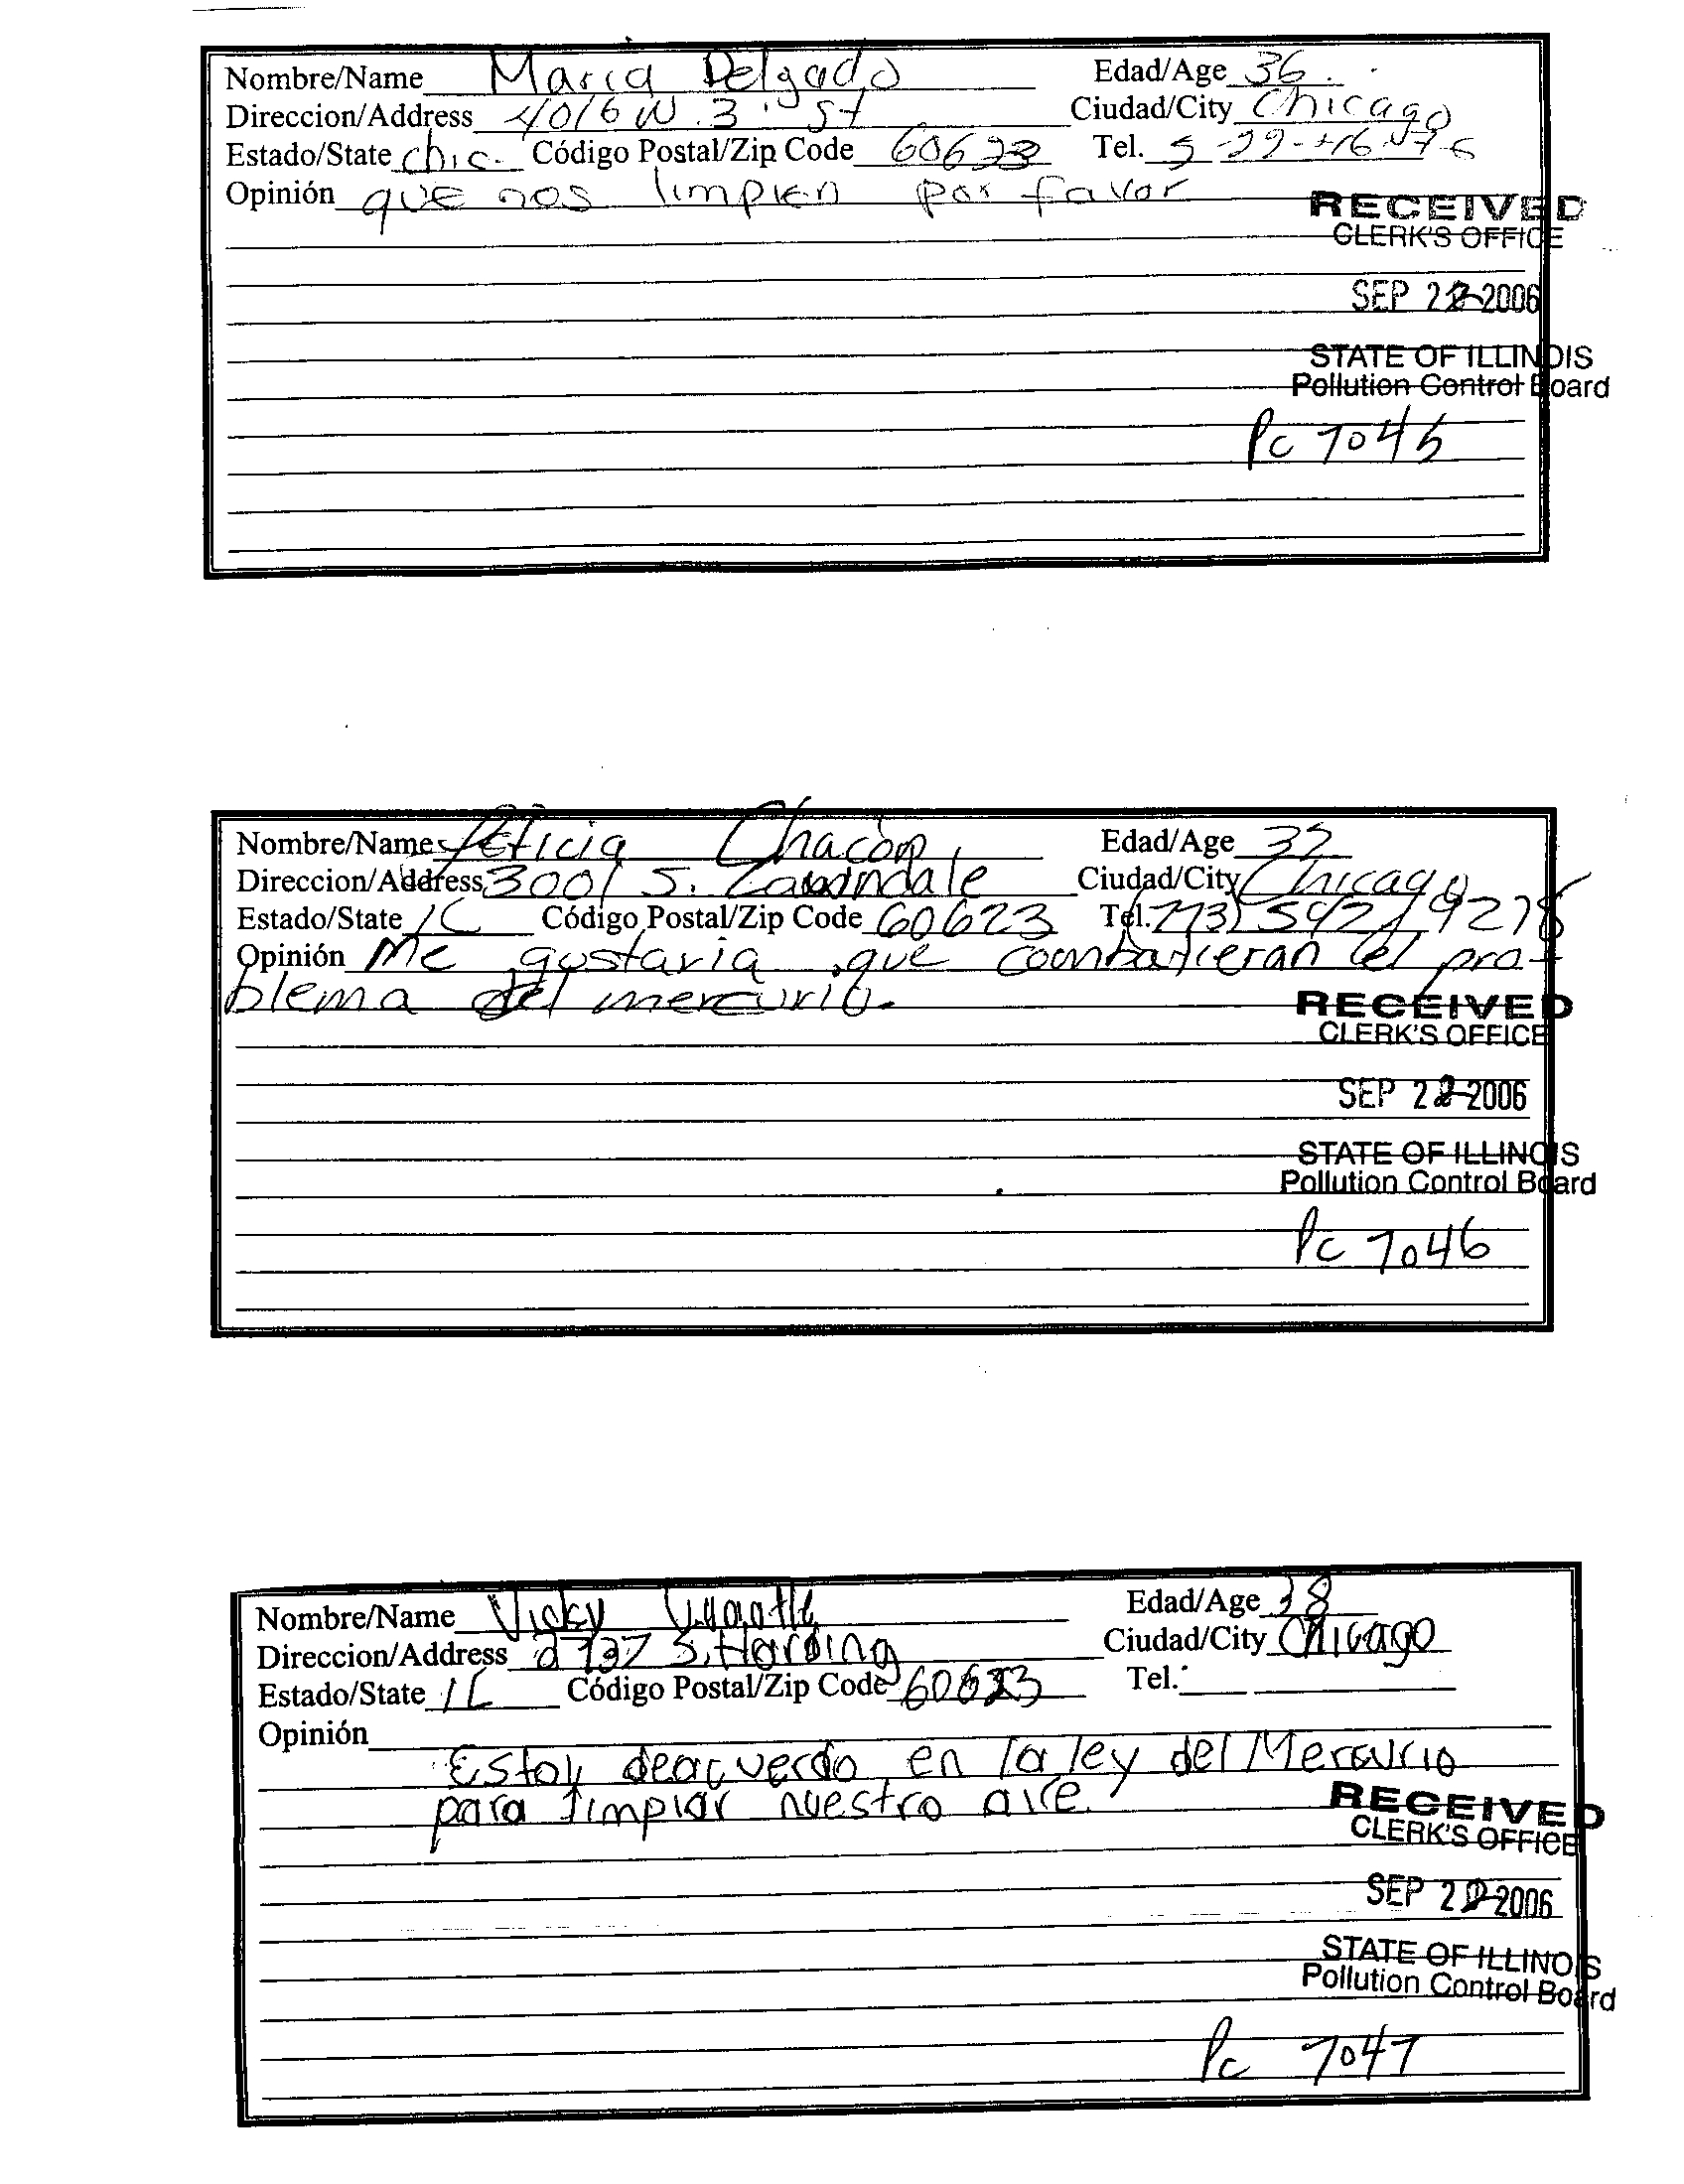 Nombre/Name Maria Delgado Edad/Age 36
Direccion/Address 4016 W. 3 St Ciudad/City Chicago
Estado/State chic. Código Postal/Zip Code 60623 Tel.
Opinión que nos limpien por favor
RECEIVED
CLERK'S OFFICE
SEP 22 2006
STATE OF ILLINOIS
Pollution Control Board
Pc 7045
Nombre/Name Leticia Chacon Edad/Age
Direccion/Address 3001 S. Lawndale Ciudad/City Chicago
Estado/State IL Código Postal/Zip Code 60623 Tel. (773) 542 9275
Opinión Me gustaria que combatieran el pro-
blema del mercurio.
RECEIVED
CLERK'S OFFICE
SEP 22 2006
STATE OF ILLINOIS
Pollution Control Board
Pc 7046
Nombre/Name Vicky Edad/Age 38
Direccion/Address 2737 S. Harding Ciudad/City Chicago
Estado/State IL Código Postal/Zip Code 60623 Tel.
Opinión
Estoy deacuerdo en la ley del Mercurio
para limpiar nuestro aire.
RECEIVED
CLERK'S OFFICE
SEP 22 2006
STATE OF ILLINOIS
Pollution Control Board
Pc 7047